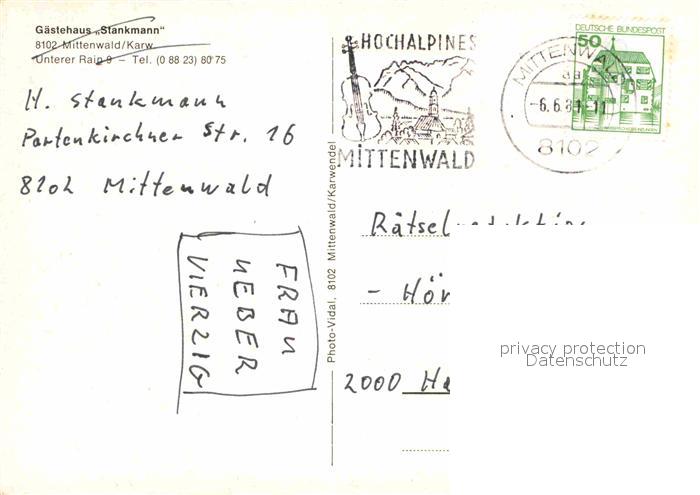 Gästehaus „Stankmann"
8102 Mittenwald/Karw.
Unterer Rain 9 – Tel. (0 88 23) 80 75
H. Stankmann
Partenkirchner Str. 16
8102 Mittenwald
FRAU
UEBER
VIERZIG
Photo-Vidal, 8102 Mittenwald/Karwendel
HOCHALPINES
MITTENWALD
MITTENWALD
aa
8102
DEUTSCHE BUNDESPOST
50
- Hör
2000 Ha
privacy protection
Datenschutz